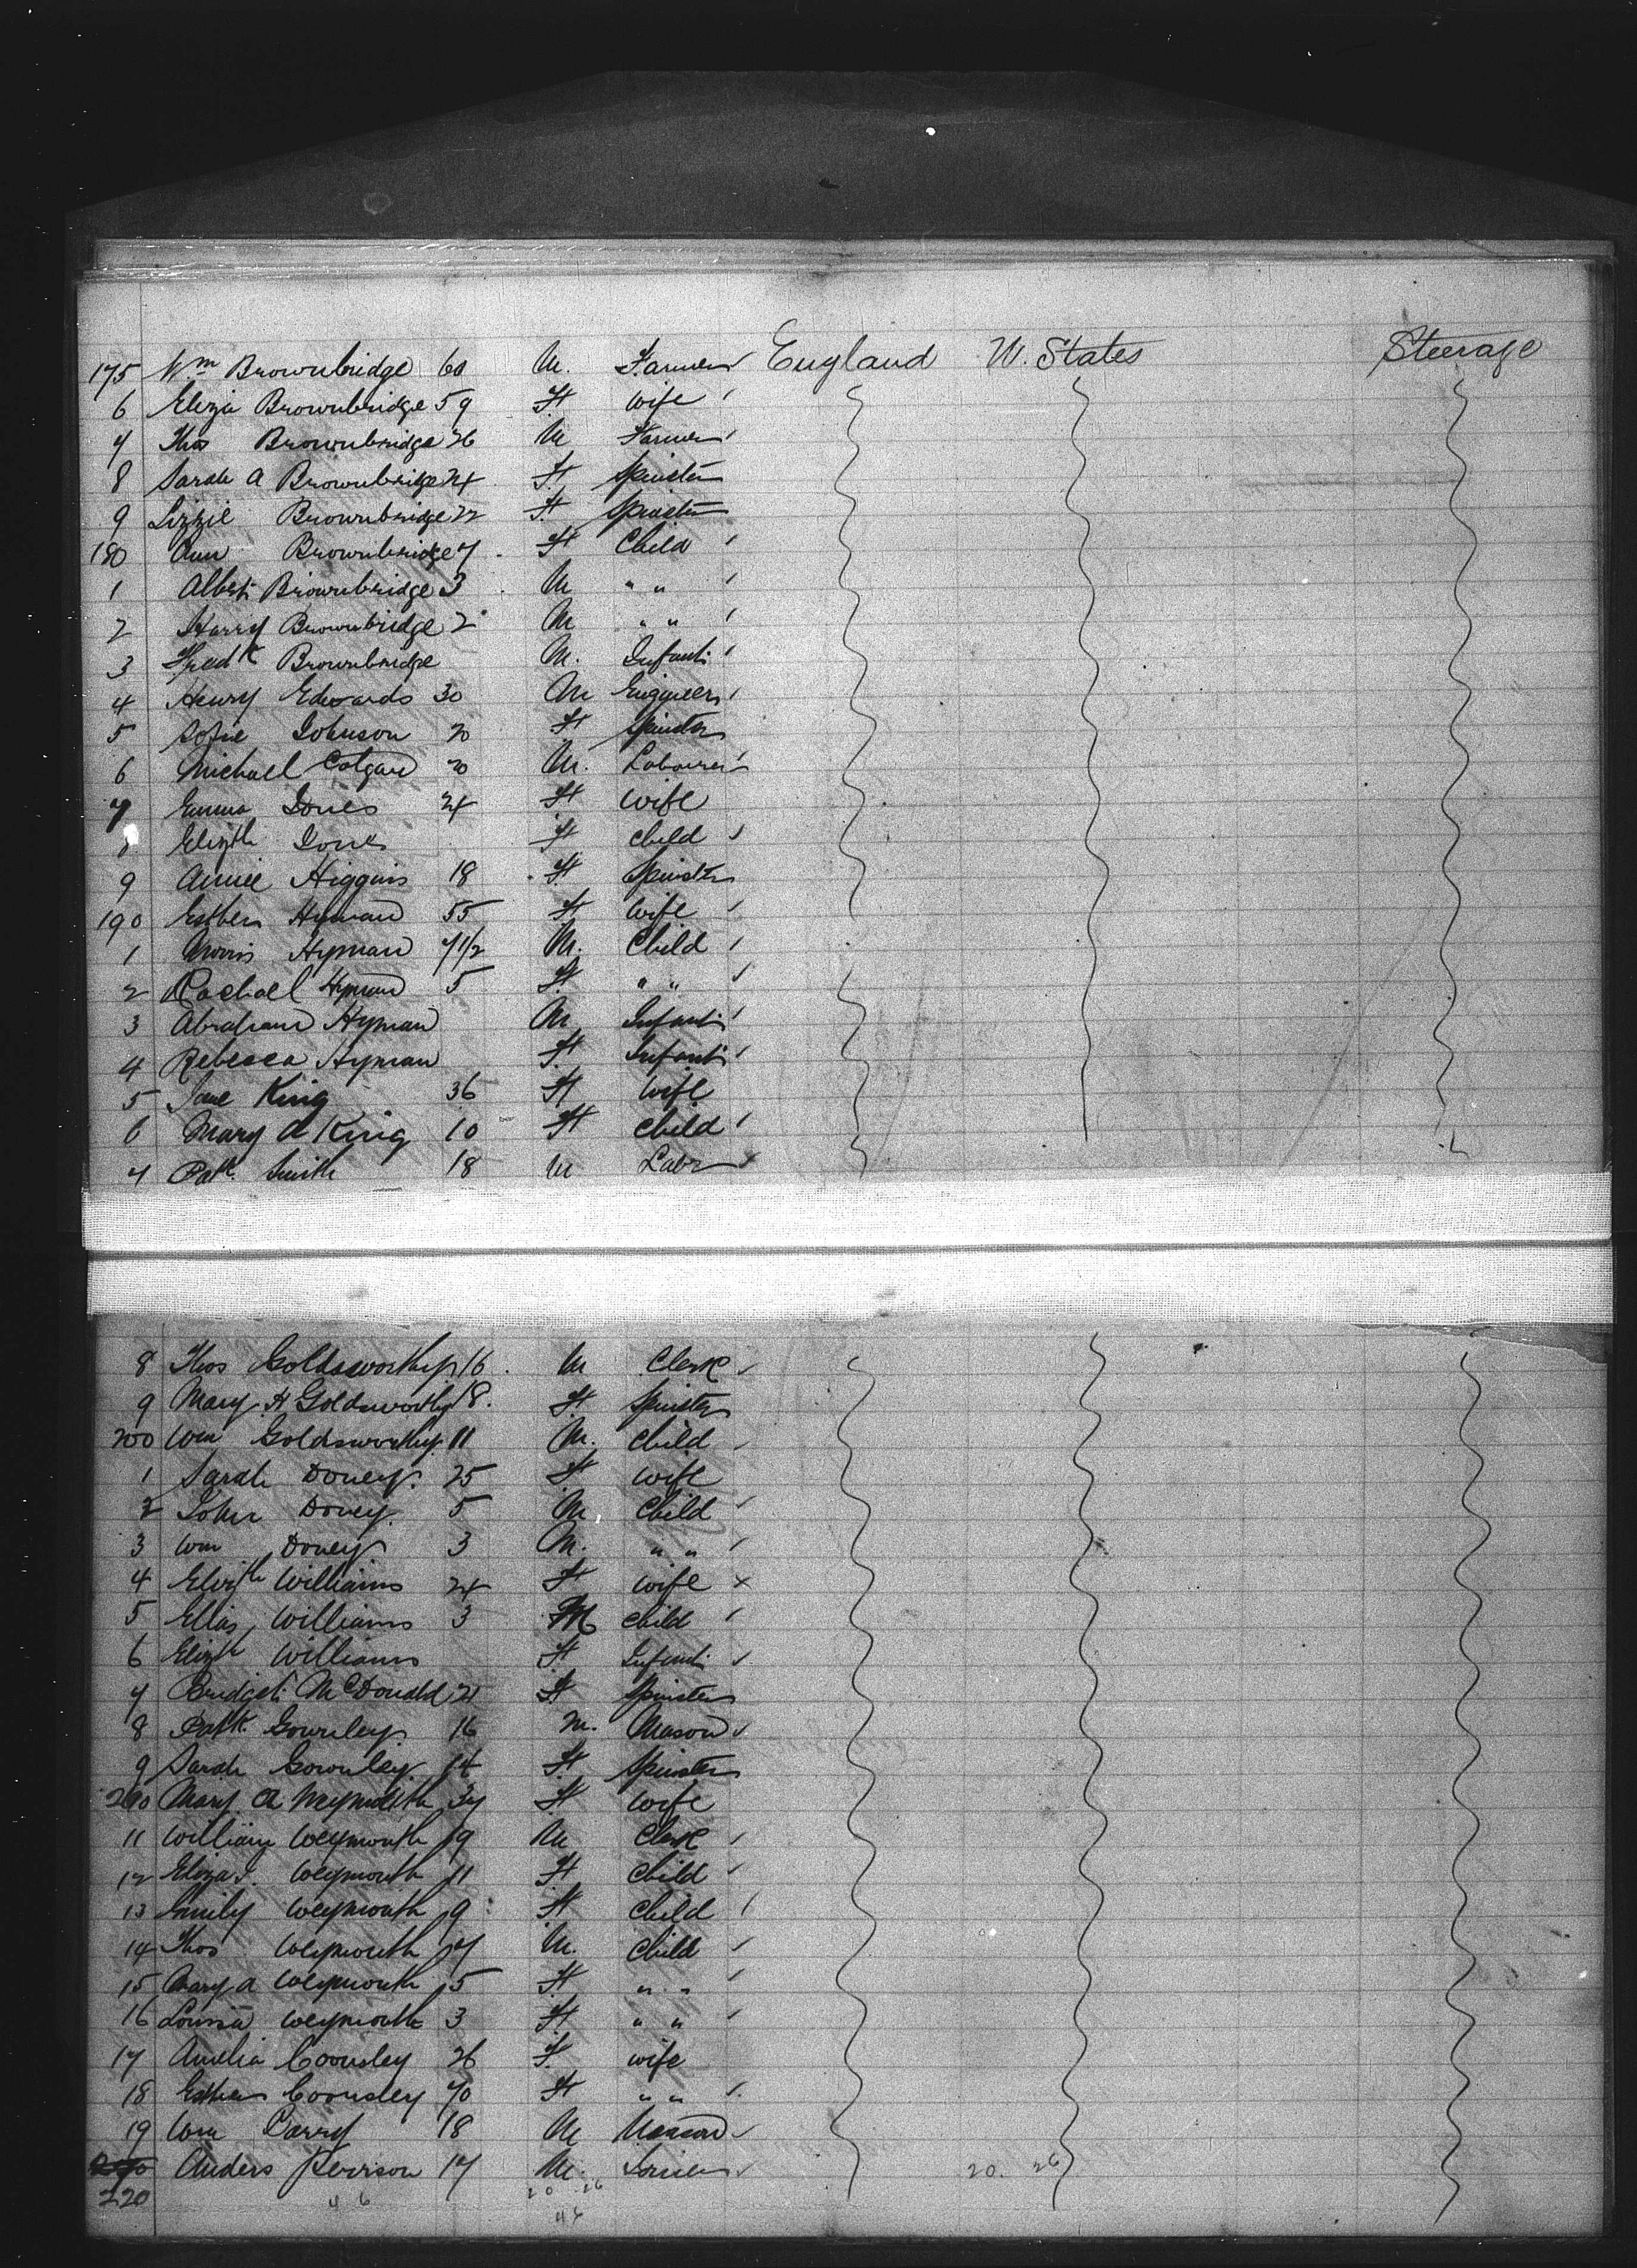 175 Wm Brownbridge 60 M. Farmer England U. States Steerage
6 Eliza Brownbridge 59 F wife
7 Thos Brownbridge 26 M Farmer
8 Sarah A Brownbridge 24 F Spinster
9 Lizzie Brownbridge 22 F. Spinster
180 Ann Brownbridge 7 F Child
1 Albert Brownbridge 3 M " "
2 Harry Brownbridge 2 M " "
3 Fredk Brownbridge M. Infant
4 Henry Edwards 30 M Engineer
5 Sofie Johnson 20 F Spinster
6 Michael Colgan 20 M. Labourer
7 Emma Jones 24 F wife
8 Elizth Jones F child
9 Annie Higgins 18 F. Spinster
190 Esther Hyman 55 F wife
1 Morris Hyman 7 1/2 M. Child
2 Rachael Hyman 5 F. " "
3 Abraham Hyman M Infant
4 Rebecca Hyman F. Infant
5 Jane King 36 F wife
6 Mary A King 10 F child
7 Patk. Smith 18 M Labr
8 Thos Goldsworthy 16 M Clerk
9 Mary H Goldsworthy 18. F Spinster
200 Wm Goldsworthy 11 M. Child
1 Sarah Doney. 25 F wife
2 John Doney. 5 M. Child
3 Wm Doney 3 M. " "
4 Elizth Williams 24 F wife x
5 Elias Williams 3 M child
6 Elizth Williams F Infant
7 Bridget McDonald 21 F Spinster
8 Patk. Gourley. 16 M. Mason
9 Sarah Gourley 14 F Spinster
210 Mary A Weymouth 37 F wife
11 William Weymouth 19 M Clerk
12 Eliza J. Weymouth 11 F Child
13 Emily Weymouth 9 F Child
14 Thos Weymouth 7 M. child
15 Mary A Weymouth 5 F. " "
16 Louisa Weymouth 3 F " "
17 Amelia 26 F. wife
18 Esther 70 F " "
19 Wm Parry 18 M Mason
Anders 17 M. 20. 26
220 46 20 26
46